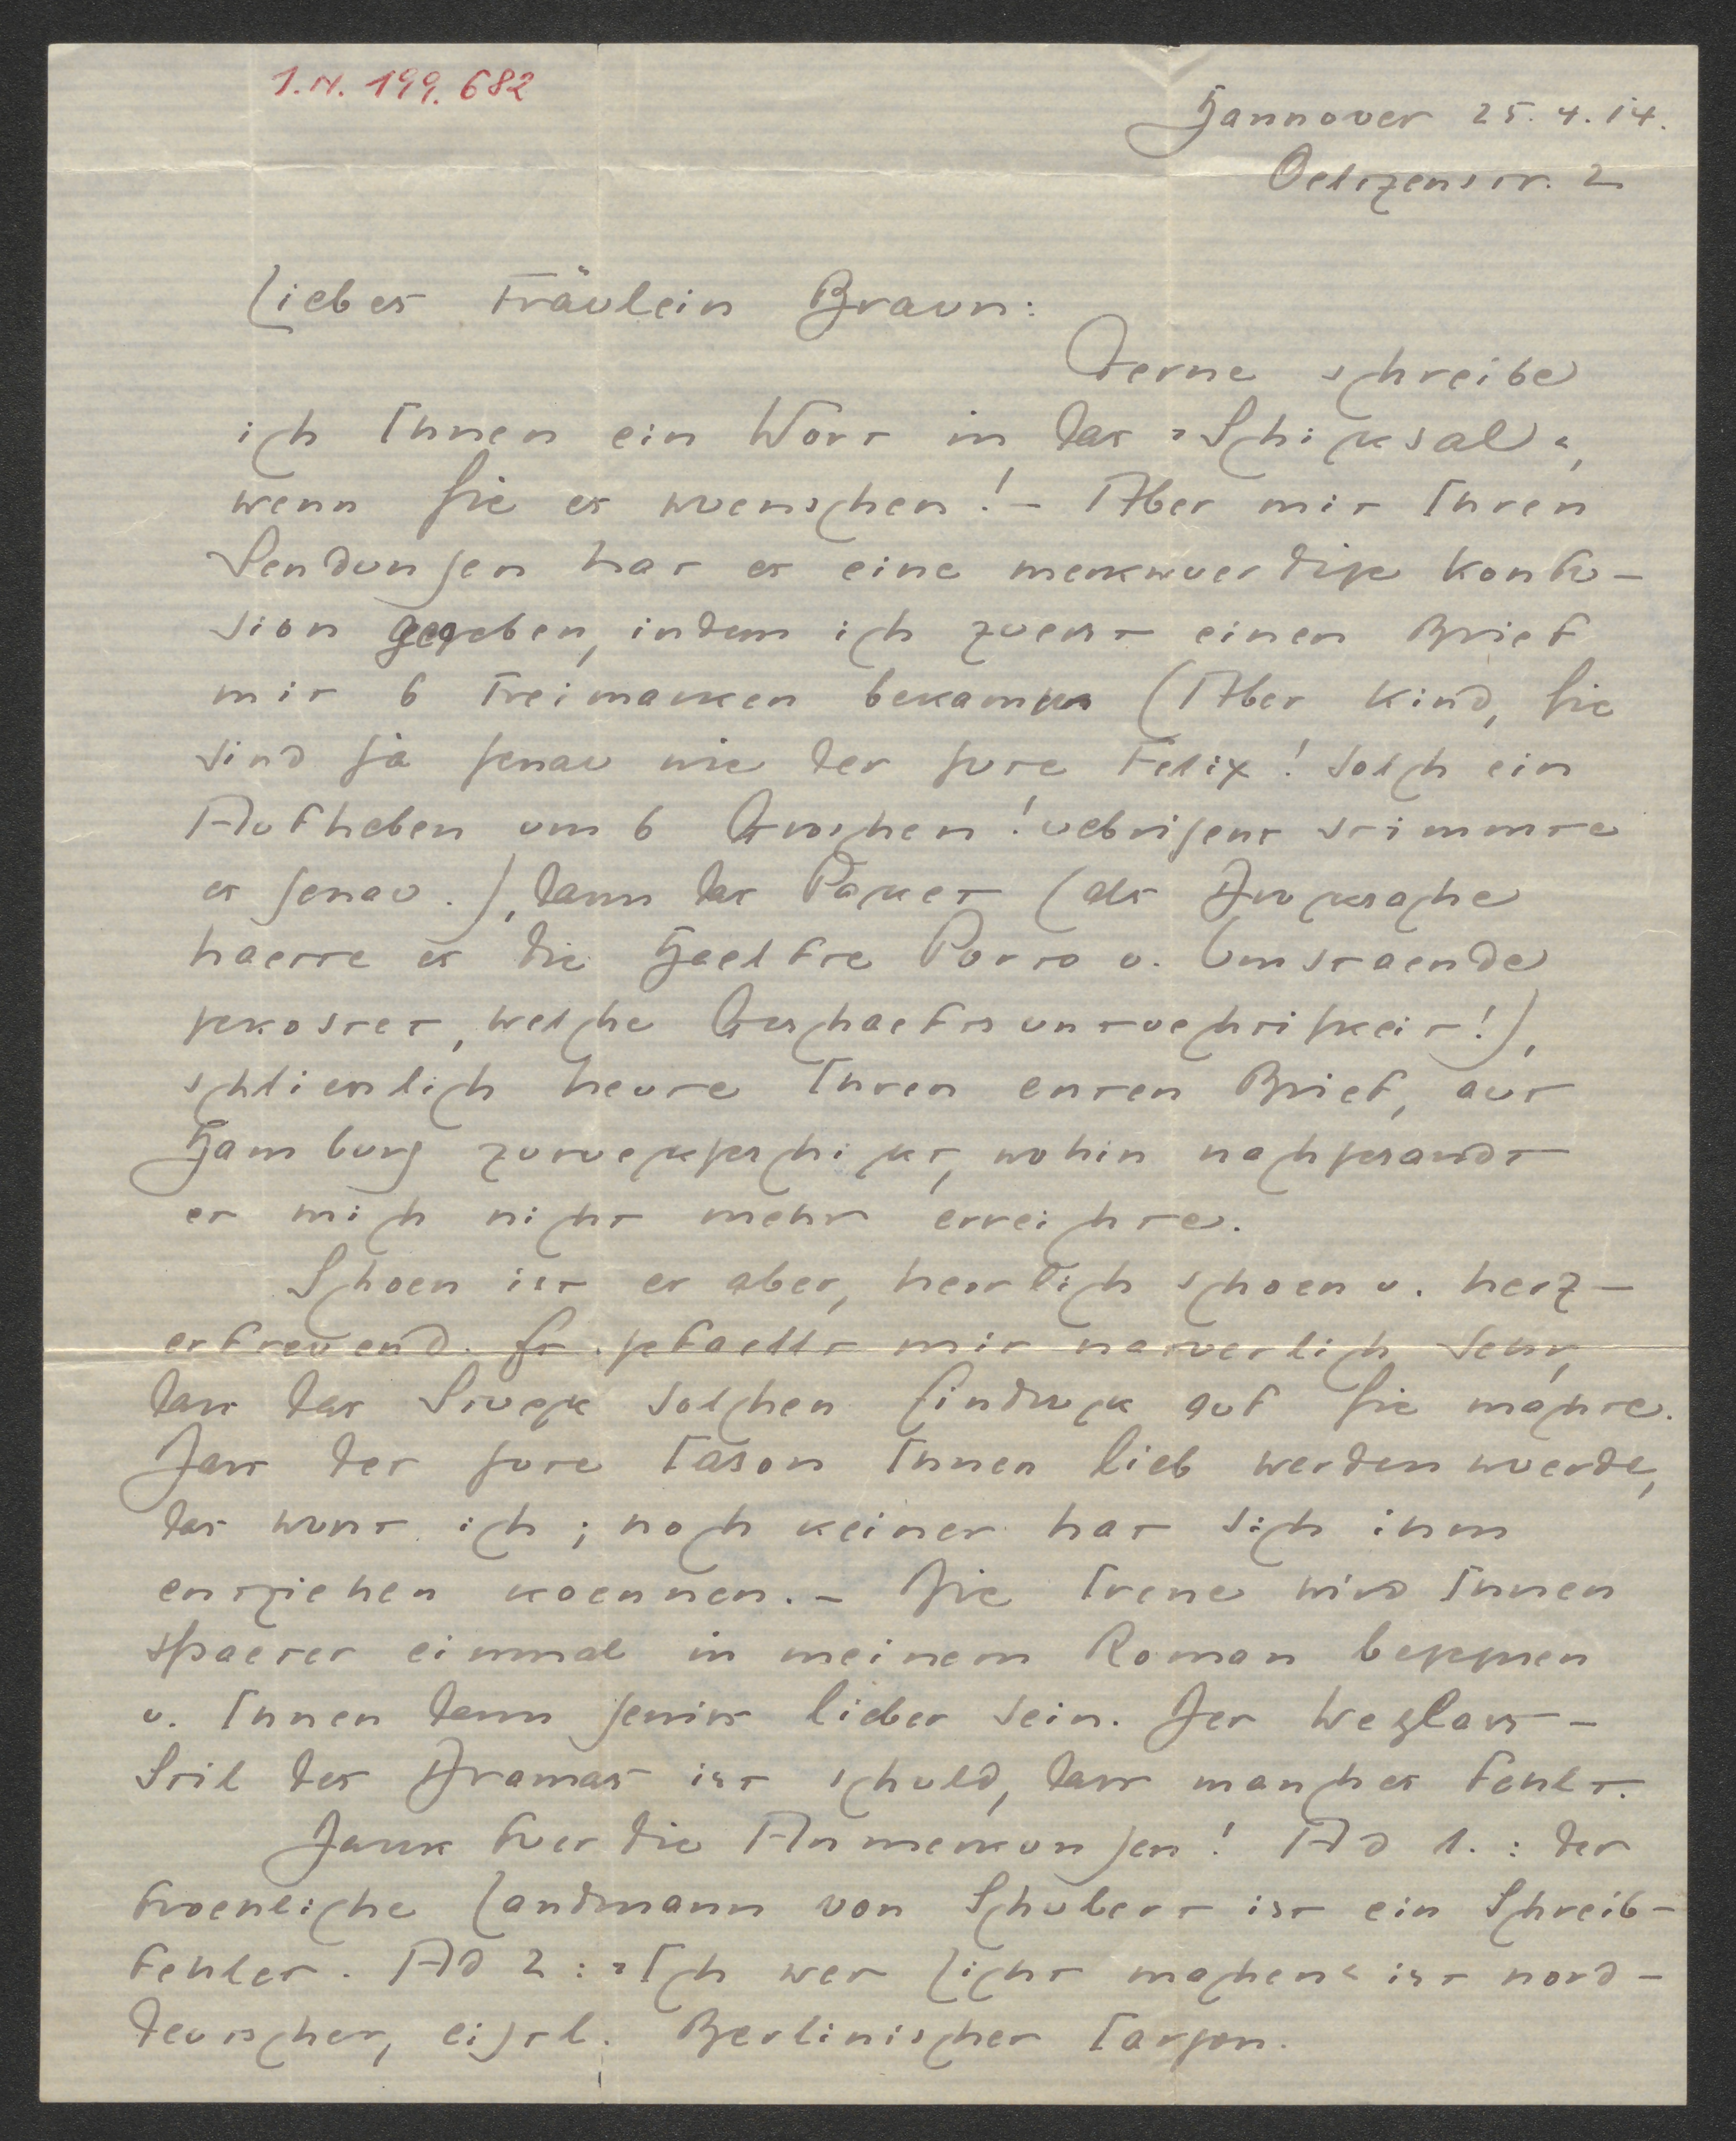 I.N. 199.682
Hannover 25. 4. 14.
Oeltzenstr. 2
Liebes Fräulein Braun:
Gerne schreibe
ich Ihnen ein Wort in das »Schicksal«,
wenn Sie es wuenschen! – Aber mit Ihren
Sendungen hat es eine merkwuerdige Konfu-
sion gegeben, indem ich zuerst einen Brief
mit 6 Freimarken bekam (Aber Kind, Sie
sind ja genau wie der gute Felix! Solch ein
Aufheben um 6 Groschen! uebrigens stimmte
es genau.), dann das Paket (als Drucksache
haette es die Haelfte Porto u. Umstaende
gekostet, welche Geschaeftsuntuechtigkeit!),
schliesslich heute Ihren ersten Brief, aus
Hamburg zurueckgeschickt, wohin nachgesandt
er mich nicht mehr erreichte.
Schoen ist er aber, herrlich schoen u. herz-
erfreuend. Es gefaellt mir natuerlich sehr,
dass das Stueck solchen Eindruck auf Sie machte.
Dass der gute Jason Ihnen lieb werden wuerde,
das wusst ich; noch keiner hat sich ihm
entziehen koennen. – Die Irene wird Ihnen
spaeter einmal in meinem Roman begegnen
u. Ihnen dann gewiss lieber sein. Der Weglass-
Stil des Dramas ist schuld, dass manches fehlt.
Dank fuer die Anmerkungen! Ad 1.: der
froehliche Landmann von Schubert ist ein Schreib-
fehler. Ad 2: »Ich wer Licht machen« ist nord-
deutscher, eigtl. Berlinischer Jargon.